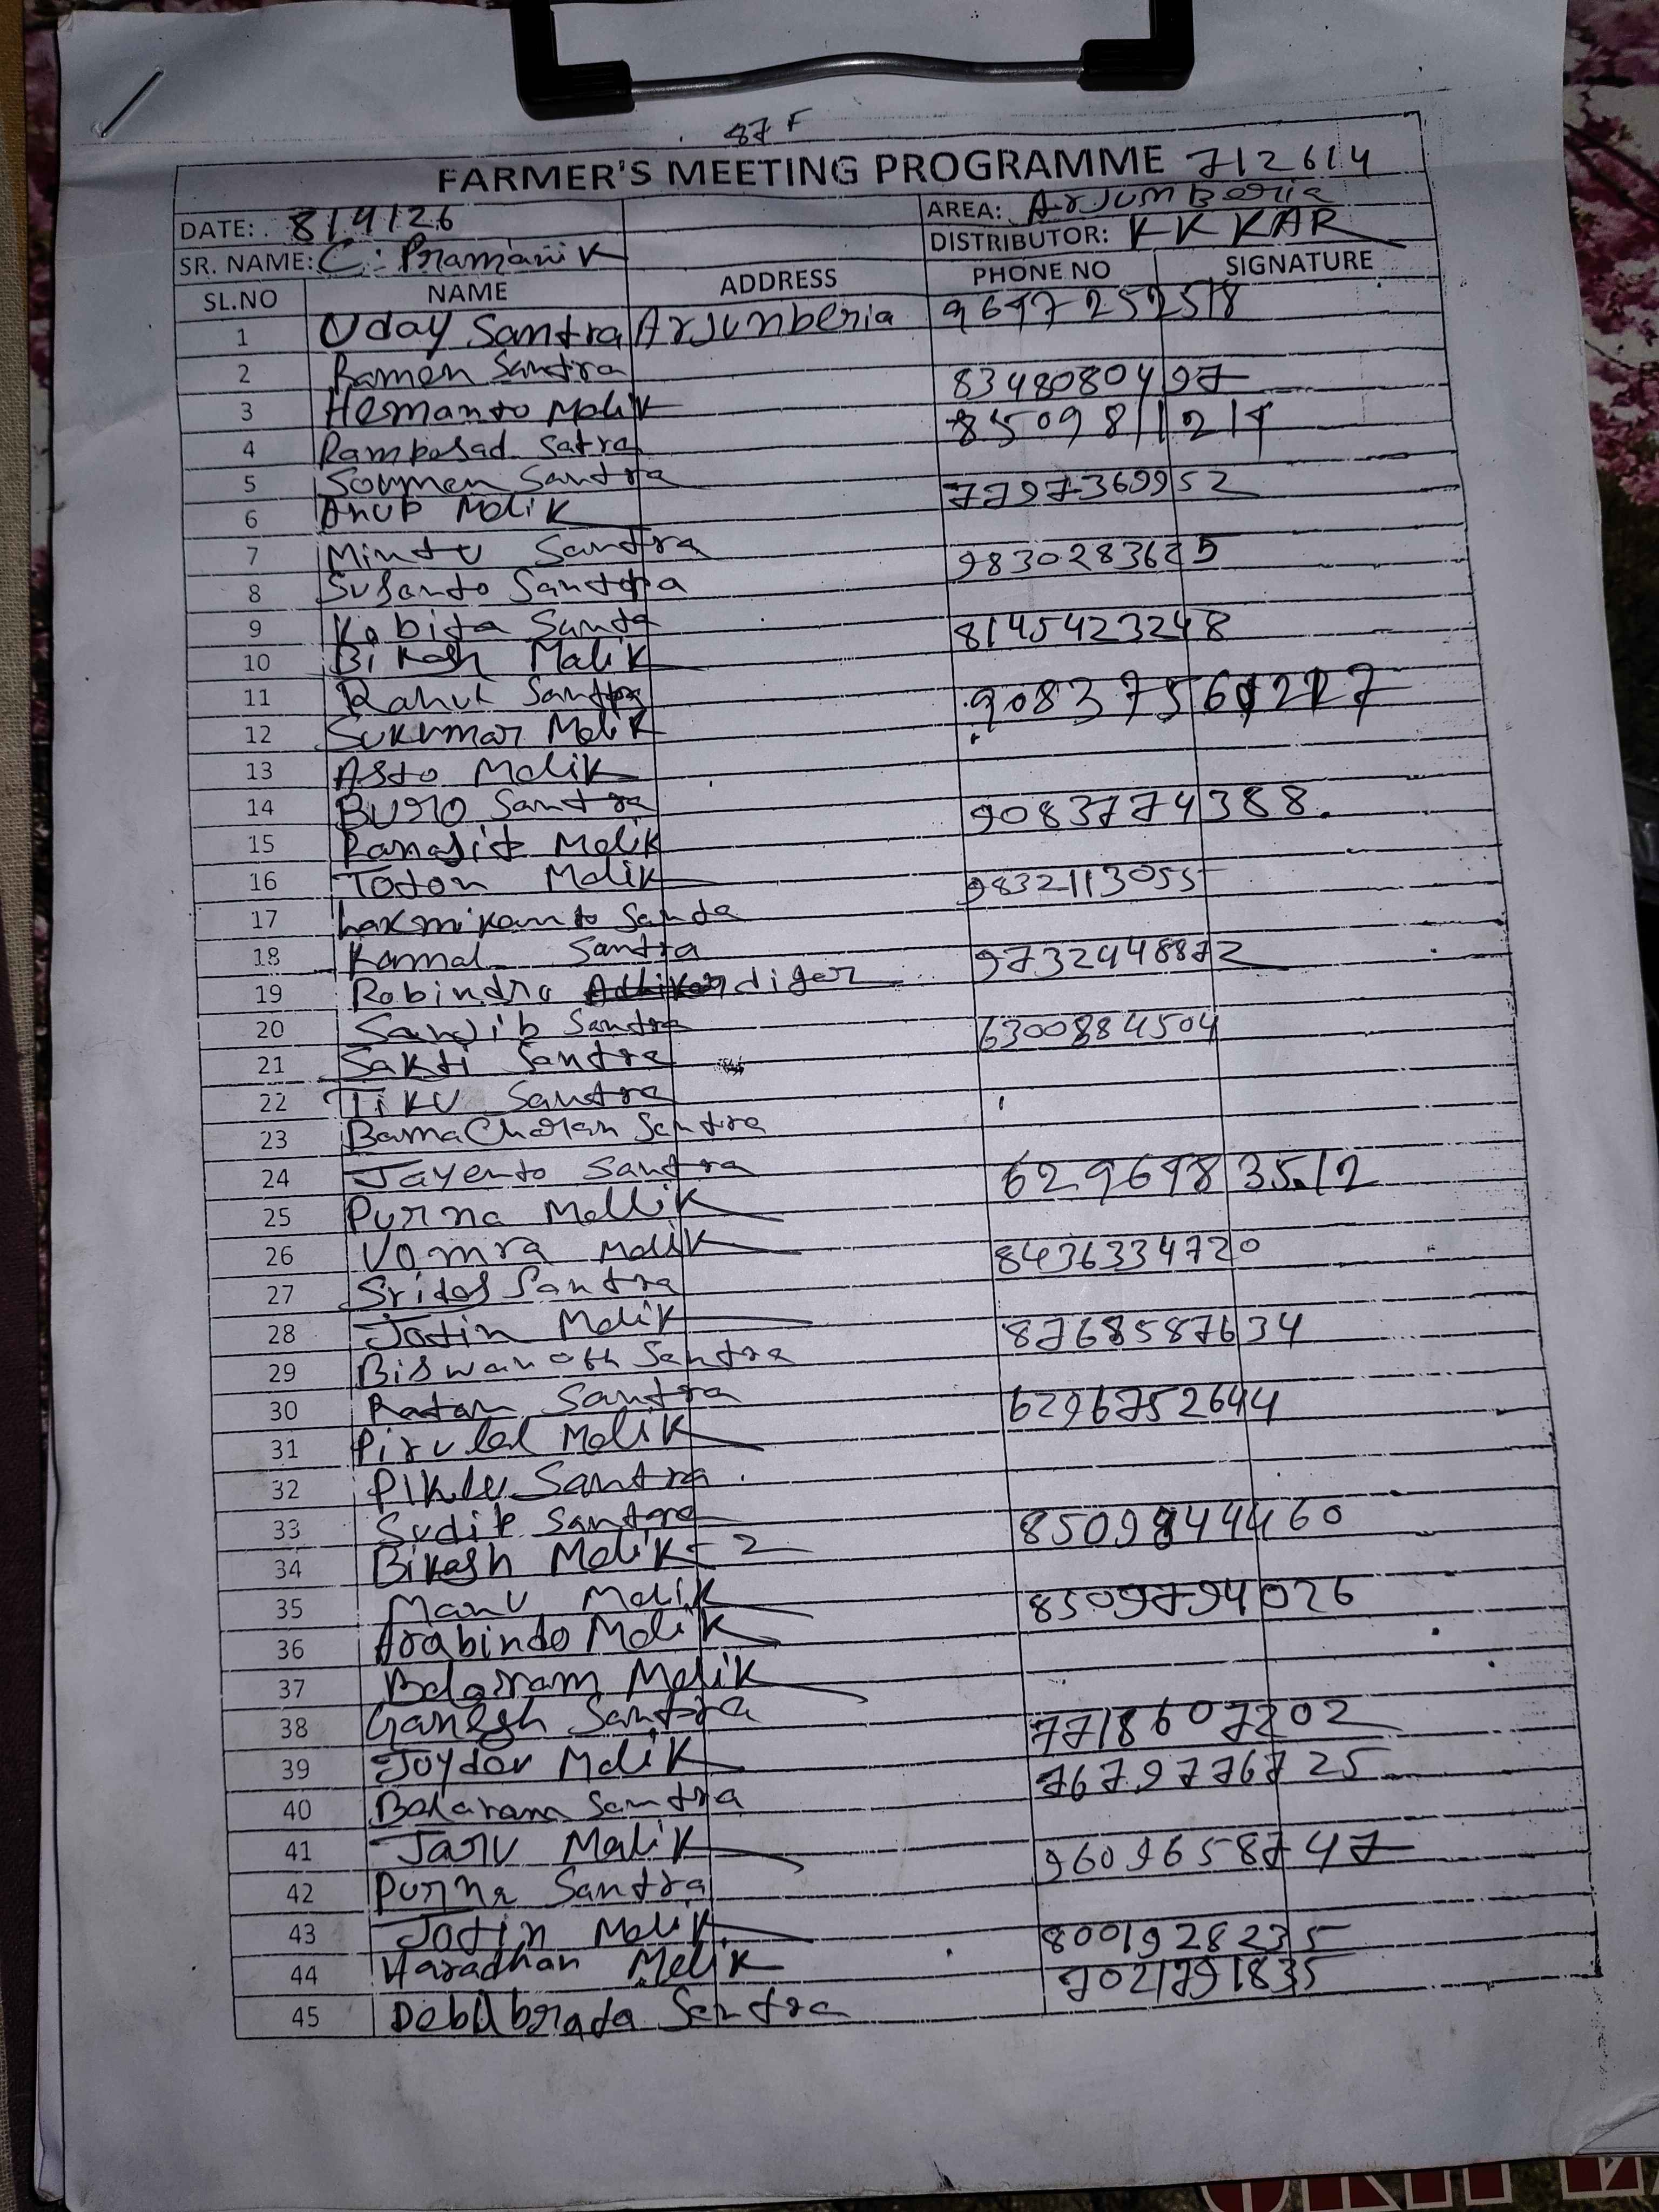 87 F
FARMER'S MEETING PROGRAMME 712614
DATE: 8/4/26 AREA: Arjumberia
SR. NAME: C. Pramanik DISTRIBUTOR: KK KAR
SL.NO NAME ADDRESS PHONE NO SIGNATURE
1 Uday Santra Arjunberia 9697252518
2 Ramen Santra 8348080497
3 Hemanto Malik 8509811214
4 Ramposad Satra
5 Soumen Santra 7797369952
6 Anup Malik
7 Mintu Santra 9830283625
8 Susanto Santra
9 Kabita Santa 8145423248
10 Bikash Malik
11 Rahul Santra 9083756
12 Sukumar Malik
13 Asto Malik
14 Buro Santra 9083774388
15 Ranajit Malik
16 Toton Malik 9832113055
17 Laxmikanto Santa
18 Kamal Santra 9732948872
19 Robindra diger
20 Sanjib Santra 6300884504
21 Sakti Santra
22 Tiku Santra
23 BamaCharan Santra
24 Jayento Santra 6296983512
25 Purna Mallik
26 Vomra Malik 8436334720
27 Sridas Santra
28 Jotin Malik 8768587634
29 Biswanath Santra
30 Ratan Santra 6296752644
31 Pirulal Malik
32 Piklu Santra
33 Sudip Santra 8509844460
34 Bikash Malik-2
35 Manu Malik 8509794026
36 Arabindo Malik
37 Balaram Malik
38 Ganesh Santra 7718607202
39 Joydev Malik 7679776725
40 Balaram Santra
41 Jaru Malik 9609658747
42 Purna Santra
43 Jotin Malik 8001928235
44 Haradhan Malik 9021791835
45 Debubrata Santra